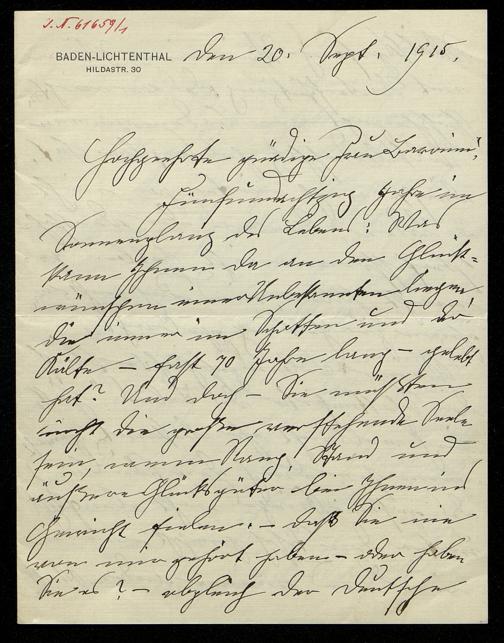 J.N. 61659/1
BADEN-LICHTENTHAL
HILDASTR. 30
den 20. Sept. 1915.
Hochgeehrte gnädige Frau Baronin!
Fünfundachtzig Jahre im
Sonnenglanz des Lebens! Was
kann Ihnen da an den Glück-
wünschen einer Unbekannten liegen,
die immer im Schatten und der
Kälte – fast 70 Jahre lang – gelebt
hat? Und doch – Sie müßten
nicht die große, verstehende Seele
sein, wenn Rang, Stand und
äußere Glücksgüter bei Ihnen ins
Gewicht fielen. – Daß Sie nie
von mir gehört haben – oder haben
Sie es? – obgleich der Deutsche